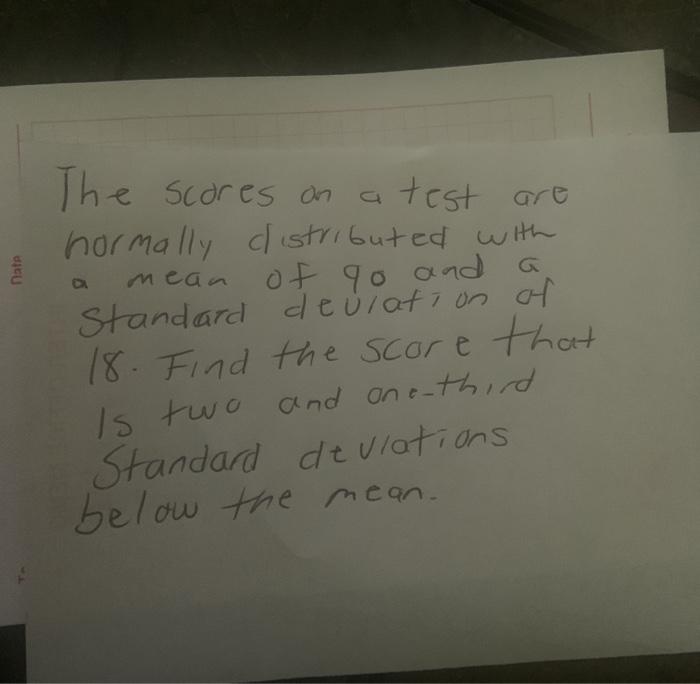 The scores on a test are
normally distributed with
a mean of 90 and a
Standard deviation of
18. Find the score that
Is two and one-third
Standard deviations
below the mean.
Date